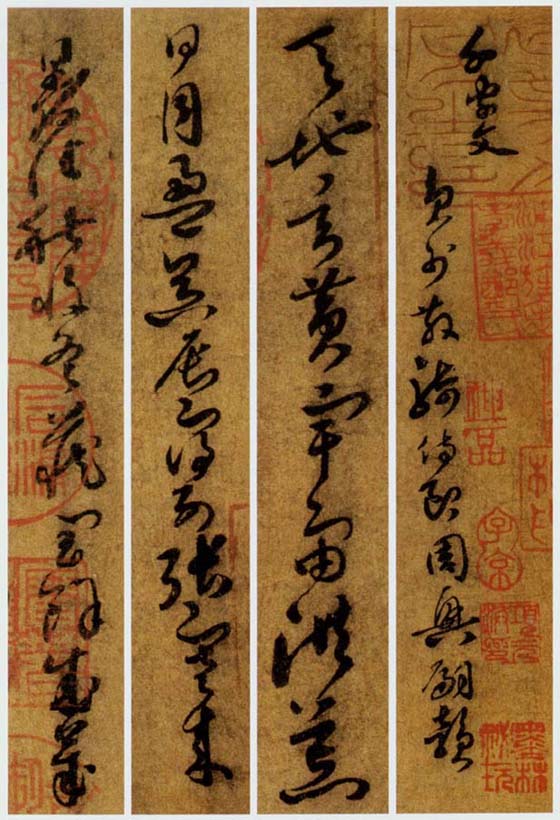 千字文
員外散騎侍郎周興嗣韻
天地玄黃宇宙洪荒
日月盈昃辰宿列張寒來
暑往秋收冬藏閏餘成歲
神品
子京